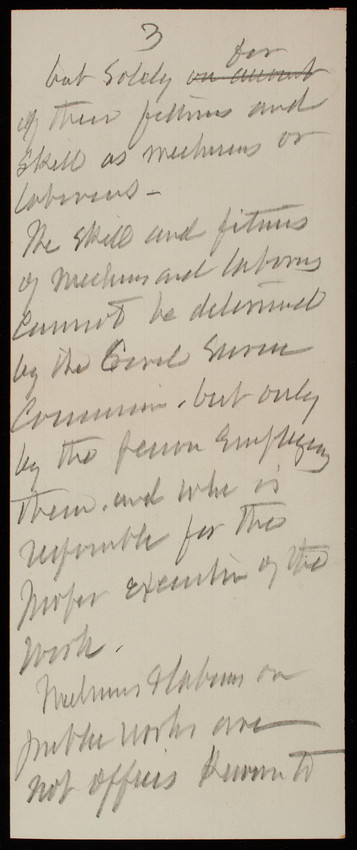 3
for
but solely on account
of their fitness and
skill as mechanics or
laborers —
The skill and fitness
of mechanics and laborers
cannot be determined
by the Civil Service
Commission, but only
by the person employing
them, and who is
responsible for the
proper execution of the
work.
Mechanics & laborers on
public works are
not officers